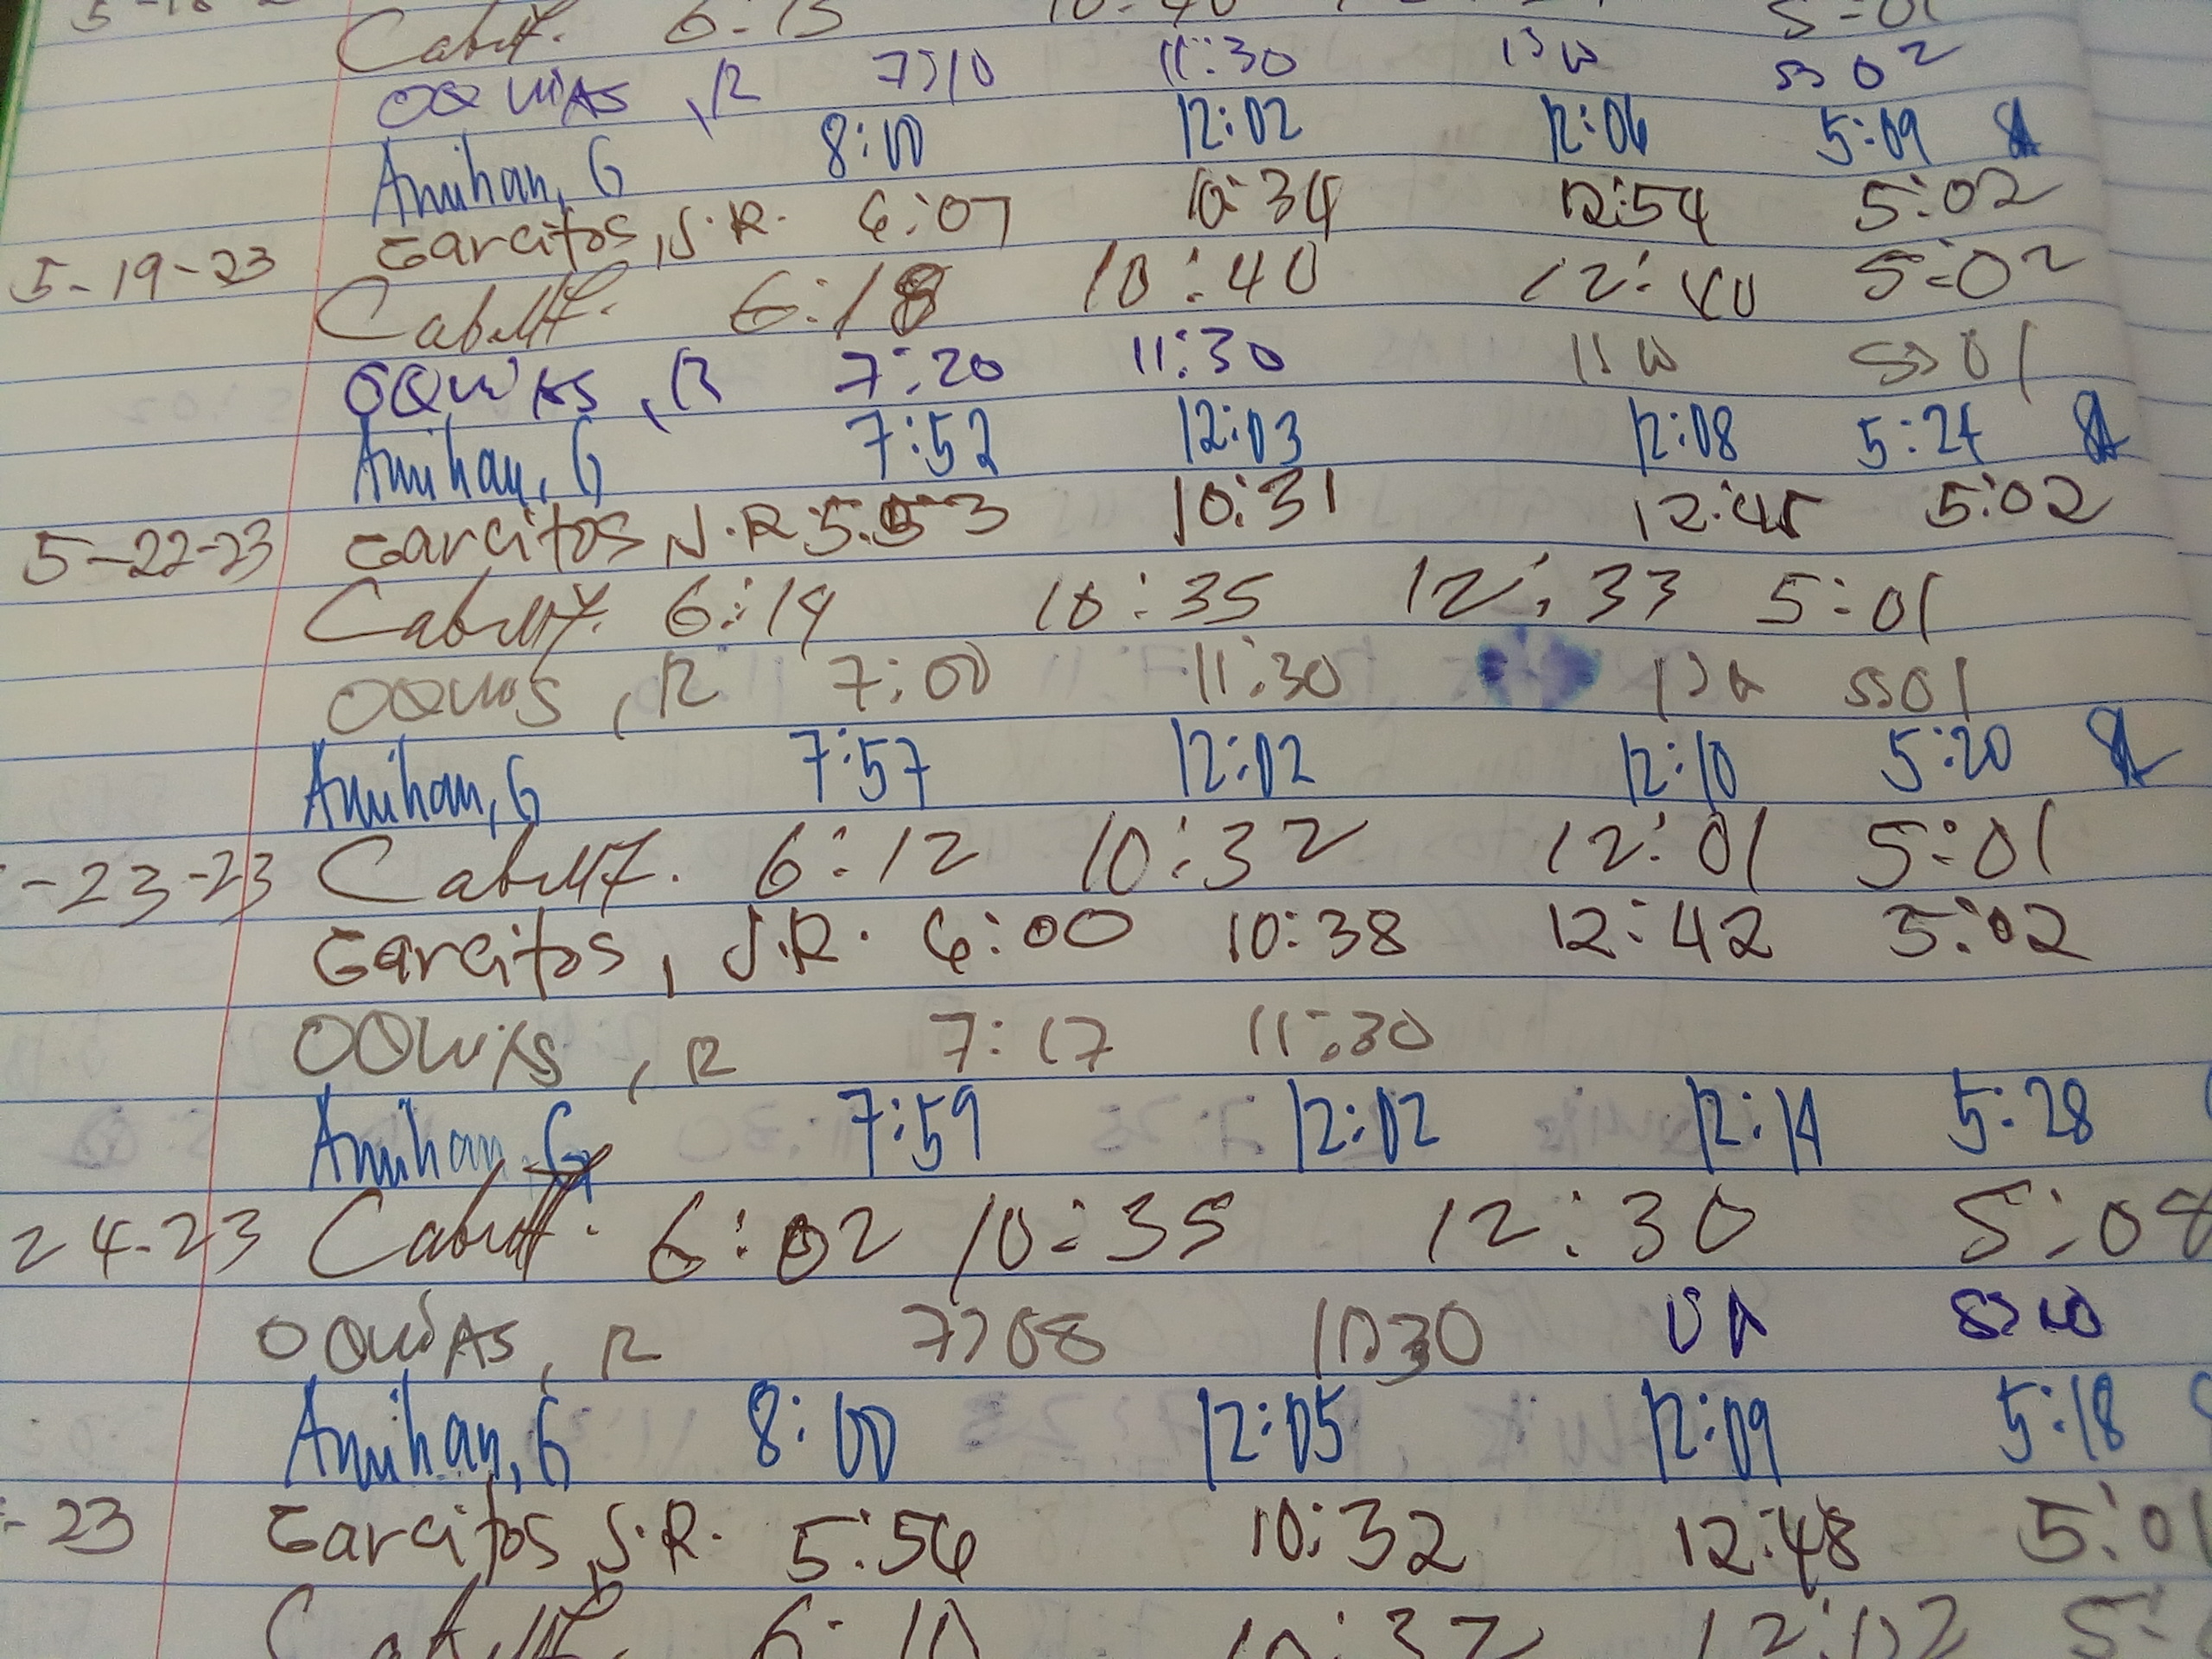 6:13 10:40 5:01
OQUIAS, R 7:10 11:30 5:02
Amihan, G 8:00 12:02 12:06 5:09
5-19-23 Garcitos, J.R. 6:07 10:34 12:54 5:02
6:18 10:40 12:40 5:02
OQUIAS, R 7:20 11:30 5:01
Amihan, G 7:52 12:03 12:08 5:24
5-22-23 Garcitos, J.R 5:53 10:31 12:45 5:02
6:14 10:35 12:33 5:01
OQUIAS, R 7:00 11:30 5:01
Amihan, G 7:57 12:02 12:10 5:20
-23-23 6:12 10:32 12:01 5:01
Garcitos, J.R. 6:00 10:38 12:42 5:02
OQUIAS, R 7:17 11:30
Amihan, G 7:59 12:02 12:14 5:28
24-23 6:02 10:35 12:30 5:08
OQUIAS, R 7:08
Amihan, G 8:00 12:05 12:09 5:18
-23 Garcitos, J.R. 5:56 10:32 12:48 5:01
6:10 10:32 12:02